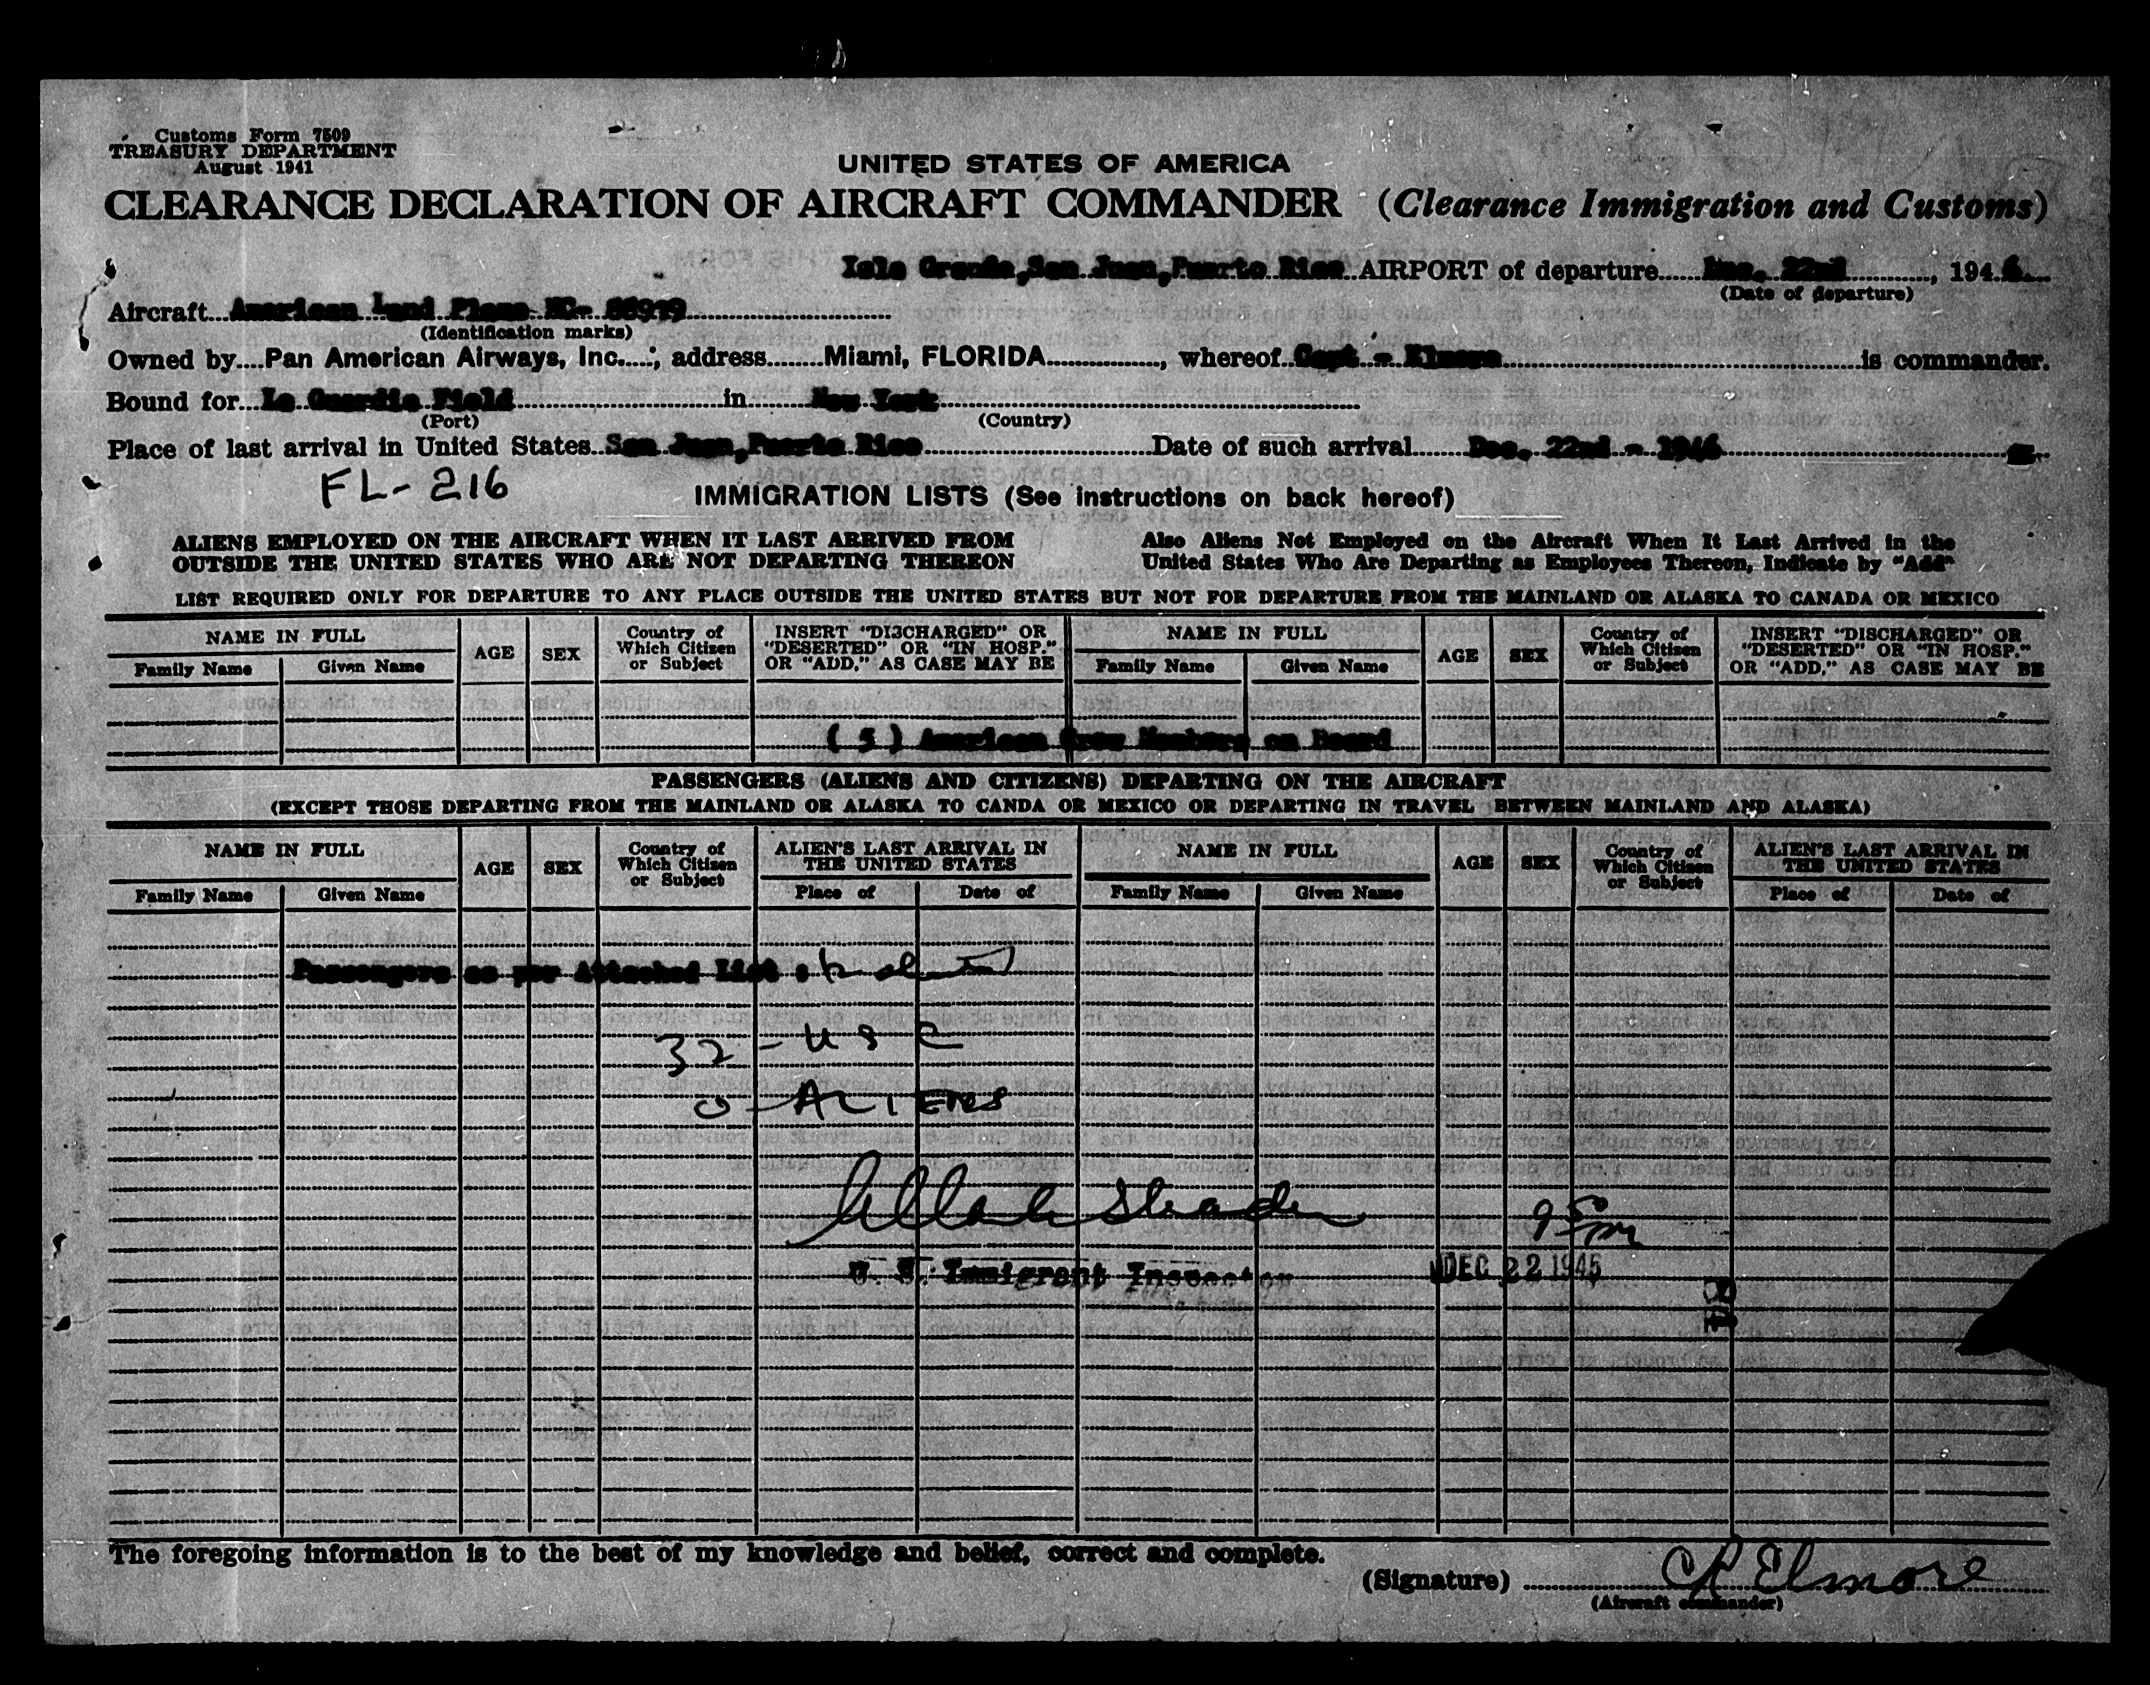 Customs Form 7509
TREASURY DEPARTMENT
August 1941
UNITED STATES OF AMERICA
CLEARANCE DECLARATION OF AIRCRAFT COMMANDER (Clearance Immigration and Customs)
Isla Grande, San Juan, Puerto Rico AIRPORT of departure Dec. 22nd, 1946
(Date of departure)
Aircraft American Land Plane NC-
(Identification marks)
Owned by Pan American Airways, Inc.; address Miami, FLORIDA, whereof Capt - Elmore is commander.
Bound for La Guardia Field in New York
(Port) (Country)
Place of last arrival in United States San Juan, Puerto Rico Date of such arrival Dec. 22nd - 1946
FL-216
IMMIGRATION LISTS (See instructions on back hereof)
ALIENS EMPLOYED ON THE AIRCRAFT WHEN IT LAST ARRIVED FROM Also Aliens Not Employed on the Aircraft When It Last Arrived in the
OUTSIDE THE UNITED STATES WHO ARE NOT DEPARTING THEREON United States Who Are Departing as Employees Thereon, Indicate by "Add"
LIST REQUIRED ONLY FOR DEPARTURE TO ANY PLACE OUTSIDE THE UNITED STATES BUT NOT FOR DEPARTURE FROM THE MAINLAND OR ALASKA TO CANADA OR MEXICO
NAME IN FULL AGE SEX Country of Which Citizen or Subject INSERT "DISCHARGED" OR "DESERTED" OR "IN HOSP." OR "ADD," AS CASE MAY BE NAME IN FULL AGE SEX Country of Which Citizen or Subject INSERT "DISCHARGED" OR "DESERTED" OR "IN HOSP." OR "ADD," AS CASE MAY BE
Family Name Given Name Family Name Given Name
( 5 ) American Crew Members on Board
PASSENGERS (ALIENS AND CITIZENS) DEPARTING ON THE AIRCRAFT
(EXCEPT THOSE DEPARTING FROM THE MAINLAND OR ALASKA TO CANDA OR MEXICO OR DEPARTING IN TRAVEL BETWEEN MAINLAND AND ALASKA)
NAME IN FULL AGE SEX Country of Which Citizen or Subject ALIEN'S LAST ARRIVAL IN THE UNITED STATES NAME IN FULL AGE SEX Country of Which Citizen or Subject ALIEN'S LAST ARRIVAL IN THE UNITED STATES
Family Name Given Name Place of Date of Family Name Given Name Place of Date of
Passengers as per Attached List :
32 - USC
0 - ALIENS
U. S. Immigrant Inspector DEC 22 1946
The foregoing information is to the best of my knowledge and belief, correct and complete.
(Signature) C R Elmore
(Aircraft commander)